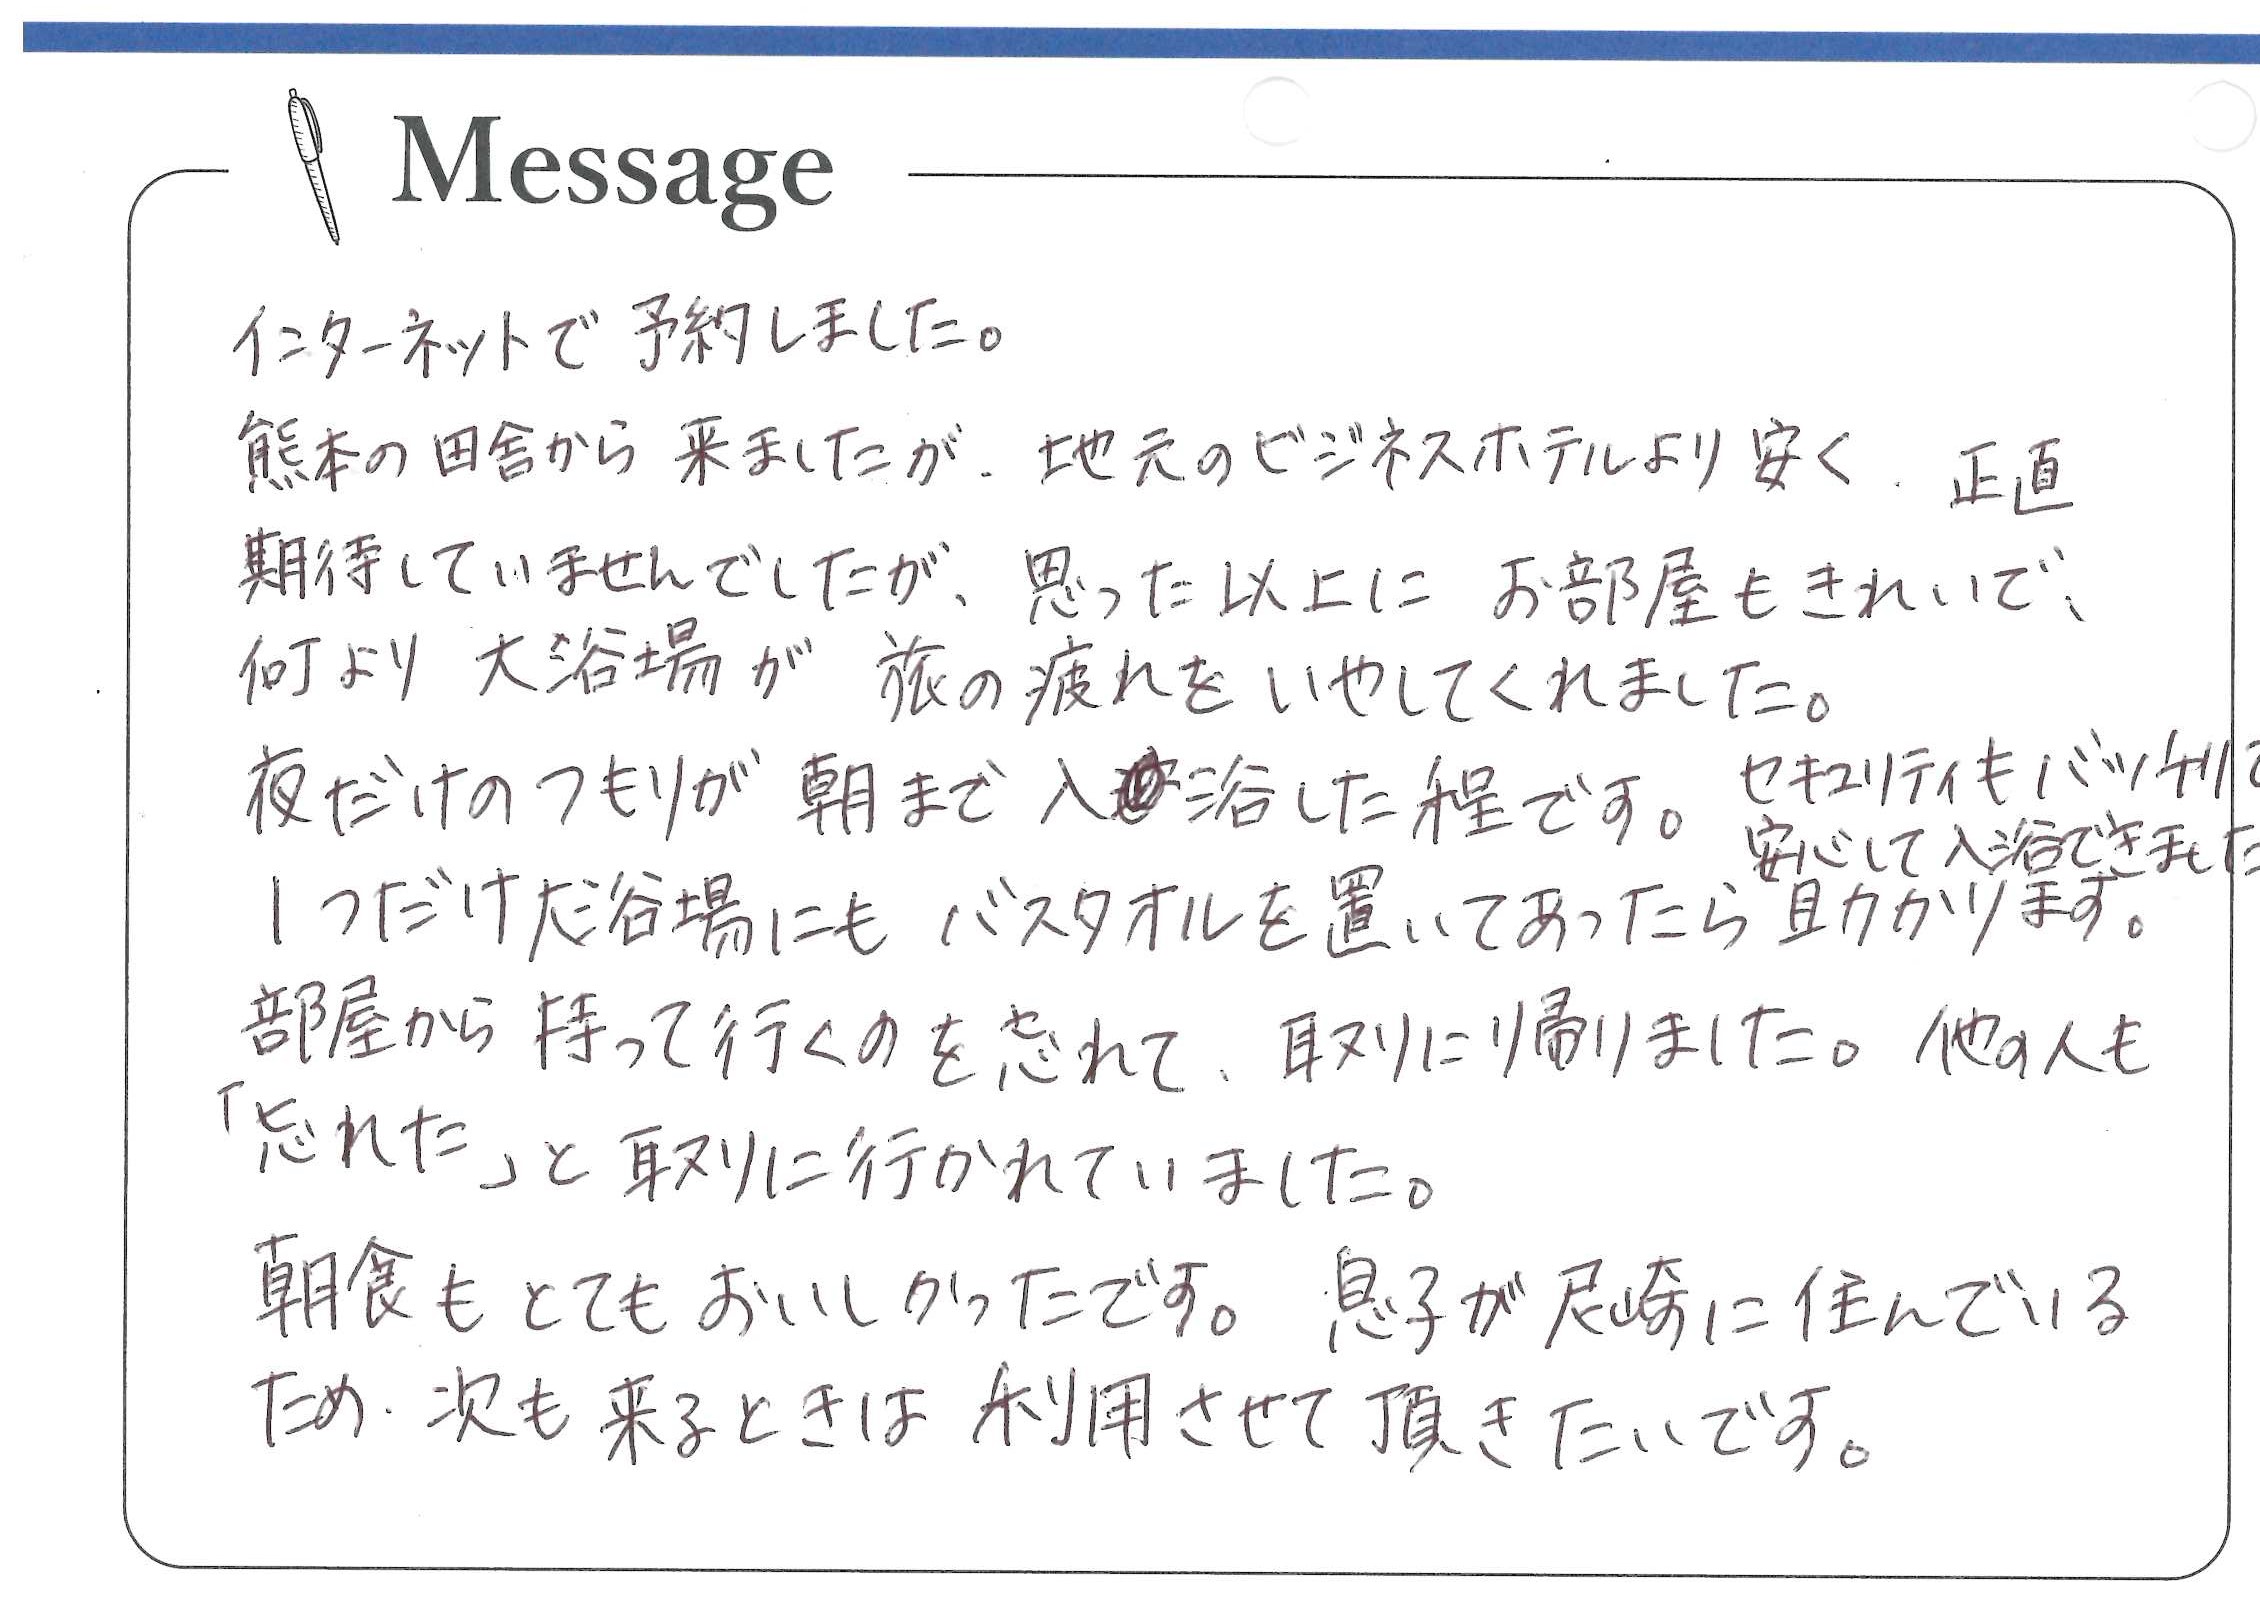 Message
インターネットで予約しました。
熊本の田舎から来ましたが、地元のビジネスホテルより安く、正直
期待していませんでしたが、思った以上にお部屋もきれいで、
何より大浴場が旅の疲れをいやしてくれました。
夜だけのつもりが朝まで入浴した程です。セキュリティもバッチリで
安心して入浴できました
1つだけ大浴場にもバスタオルを置いてあったら助かります。
部屋から持って行くのを忘れて、取りにり帰りました。他の人も
「忘れた」と取りに行かれていました。
朝食もとてもおいしかったです。息子が尼崎に住んでいる
ため、次も来るときは利用させて頂きたいです。